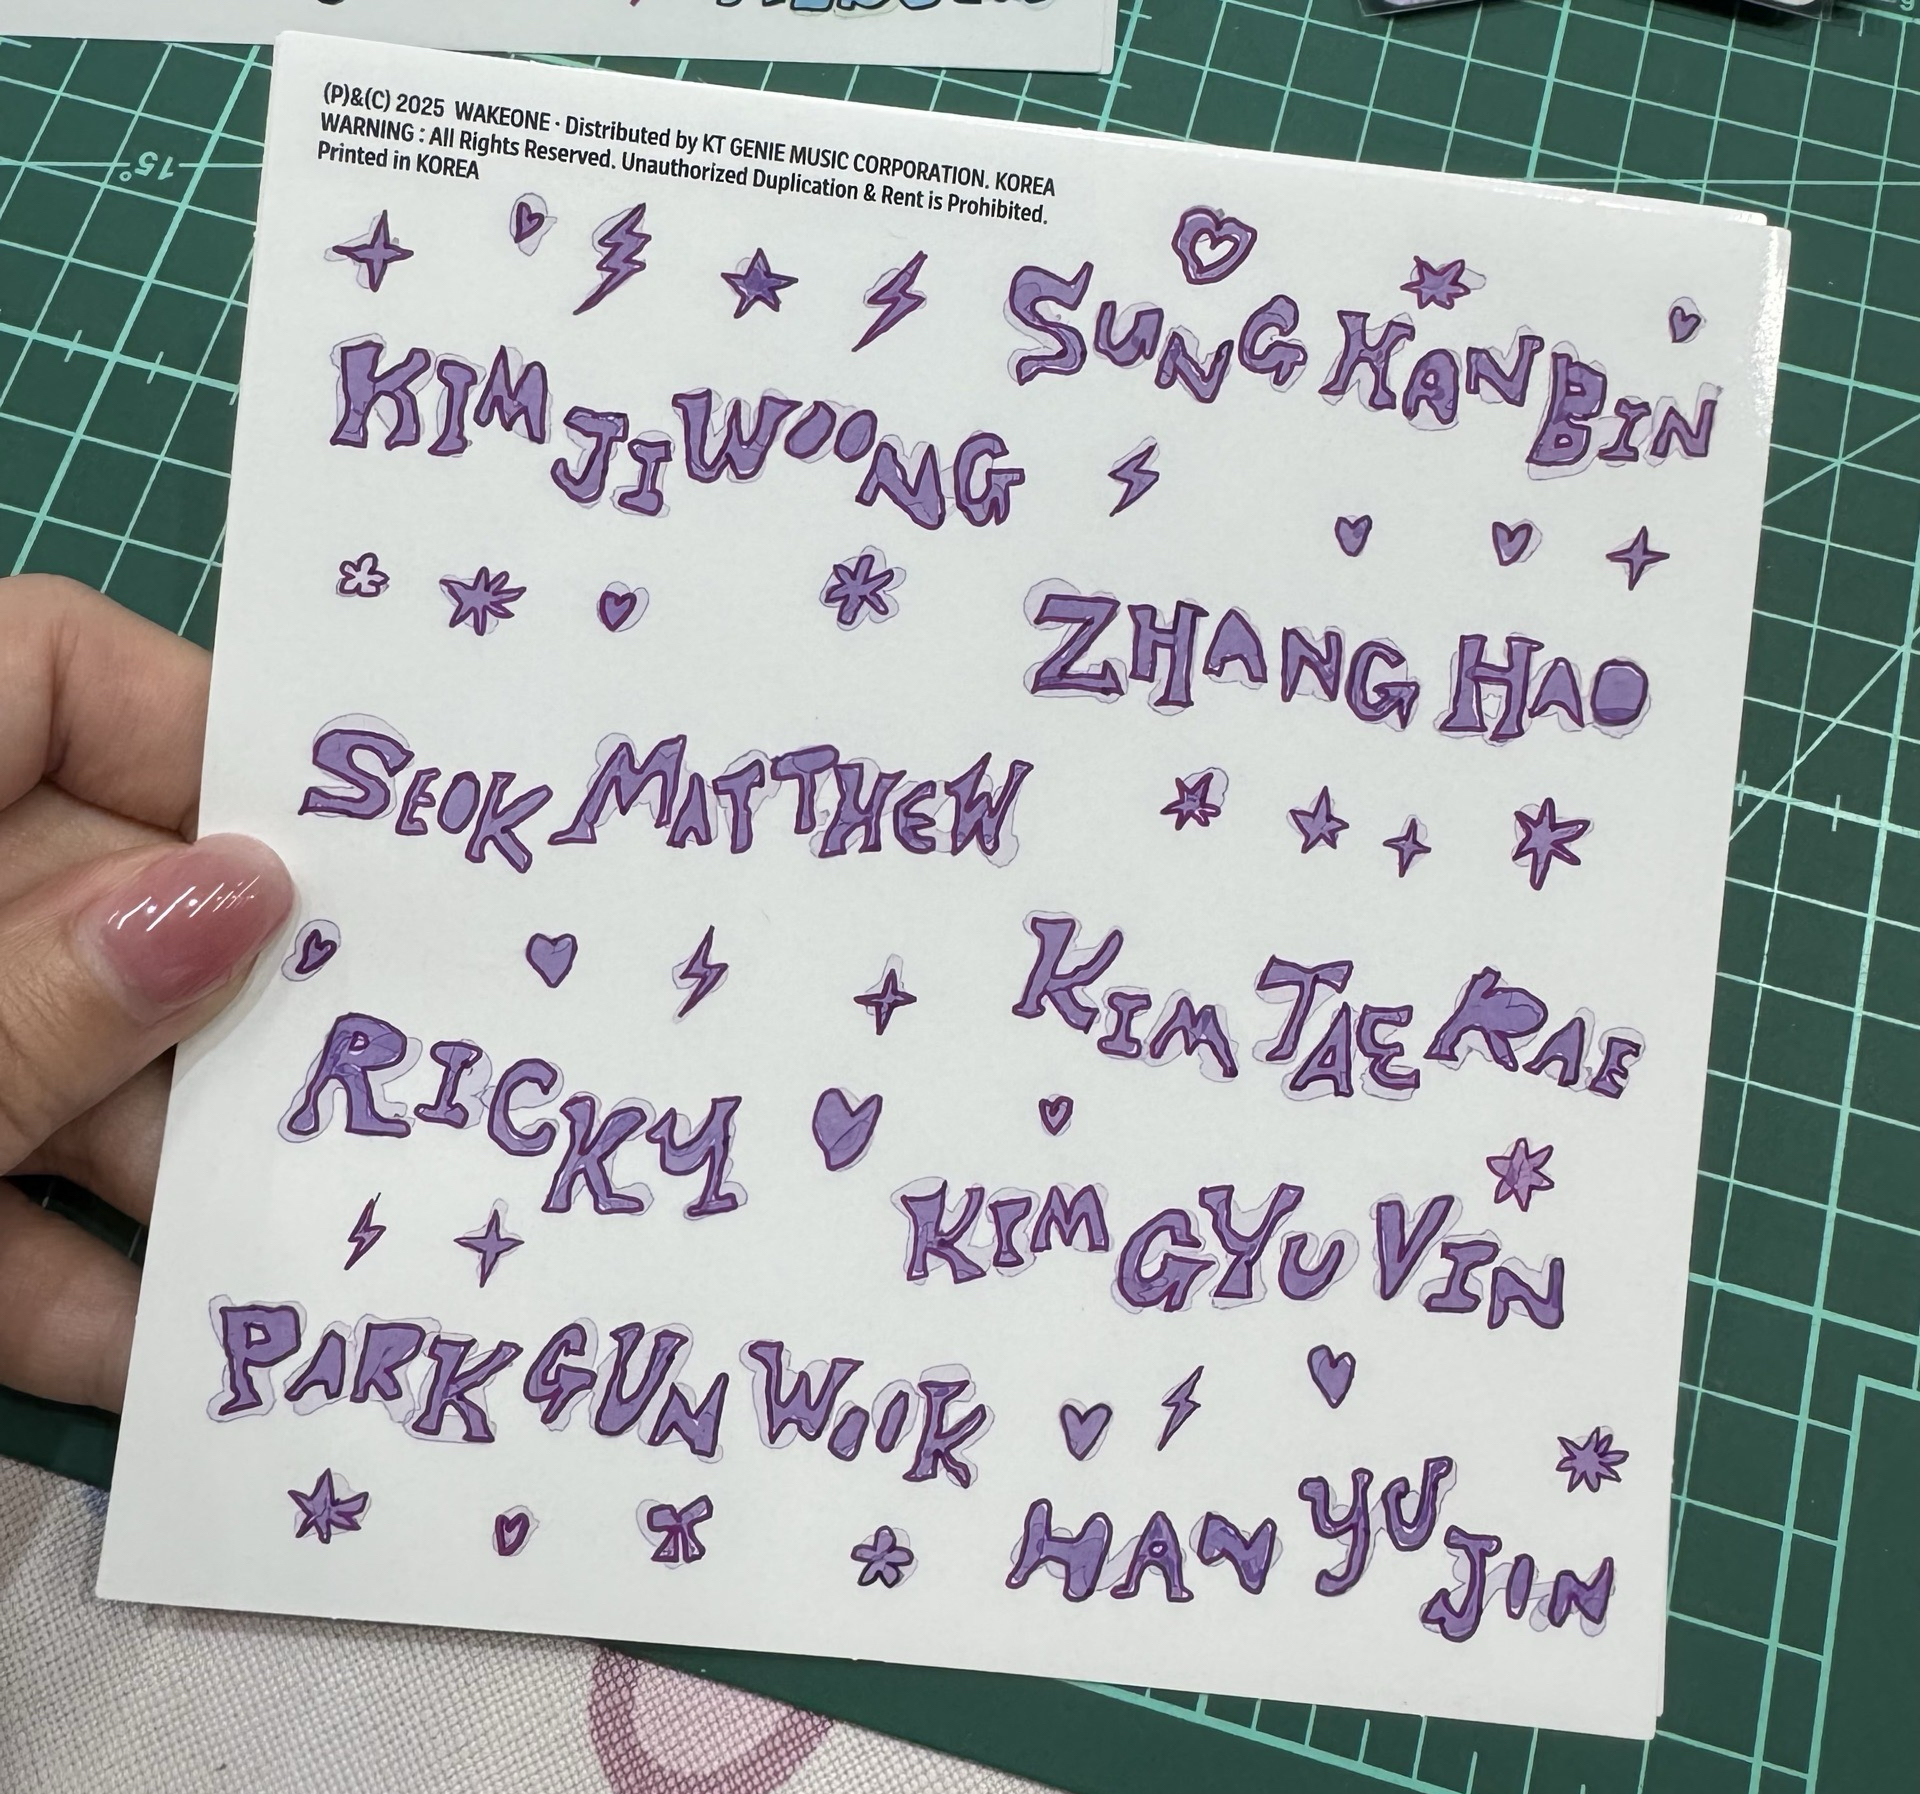 (P)&(C) 2025 WAKEONE · Distributed by KT GENIE MUSIC CORPORATION. KOREA
WARNING : All Rights Reserved. Unauthorized Duplication & Rent is Prohibited.
Printed in KOREA
SUNG HANBIN
KIM JIWOONG
ZHANG HAO
SEOK MATTHEW
KIM TAE RAE
RICKY
KIM GYU VIN
PARK GUN WOOK
HAN YU JIN
15°